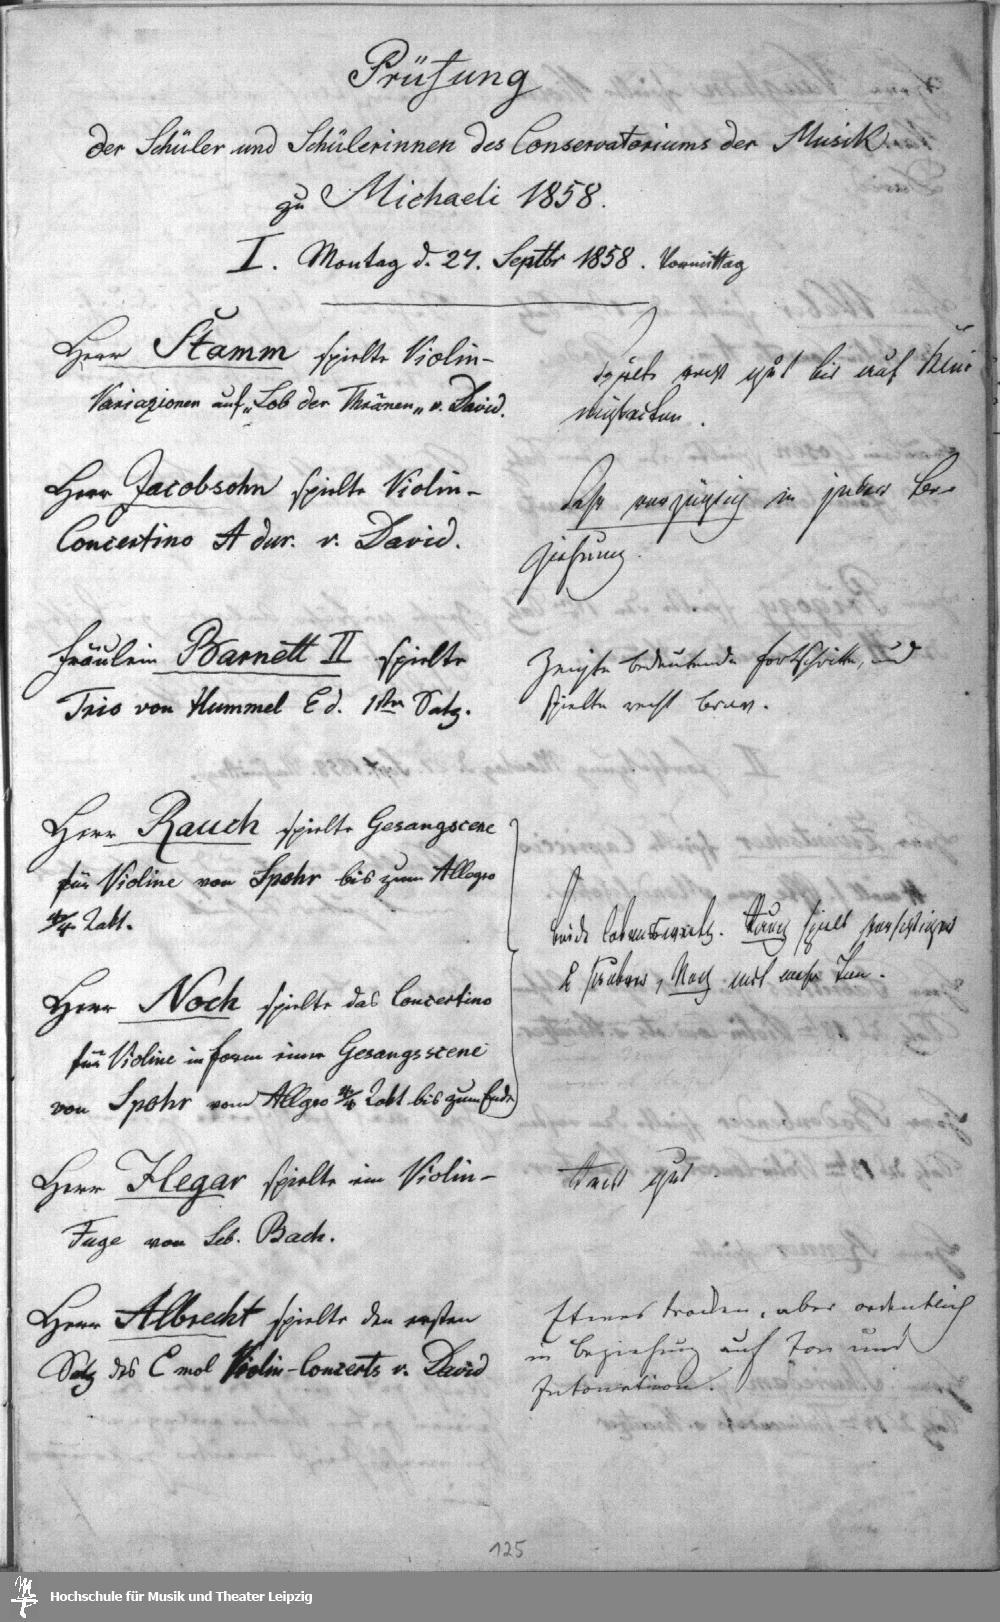 Prüfung
der Schüler und Schülerinnen des Conservatoriums der Musik
zu Michaeli 1858.
I. Montag d. 27. Septbr 1858. Vormittag
Herr Stamm spielte Violin-
Variazionen auf „Lob der Thränen„ v. David.
spielte recht gut bis auf Kleinigkeiten.
Herr Jacobsohn spielte Violin-
Concertino A dur. v. David.
Sehr vorzüglich in jeder Be-
ziehung.
Fräulein Barnett II spielte
Trio von Hummel E d. 1ster Satz.
Zeigte bedeutende Fortschritte, und
spielte recht brav.
Herr Rauch spielte Gesangscene
für Violine von Spohr bis zum Allegro
4/4 Takt.
Herr Noch spielte das Concertino
für Violine in Form einer Gesangsscene
von Spohr vom Allgro 4/4 Takt bis zum Ende
beide lobenswerth. Rauch spielt
Noch mit mehr Ton.
Herr Hegar spielte ein Violin-
Fuge von Seb. Bach.
Recht gut.
Herr Albrecht spielte den ersten
Satz des E mol Violin-Concerts v. David
Etwas trocken, aber ordentlich
in Beziehung auf Ton und
Intonation.
125
Hochschule für Musik und Theater Leipzig